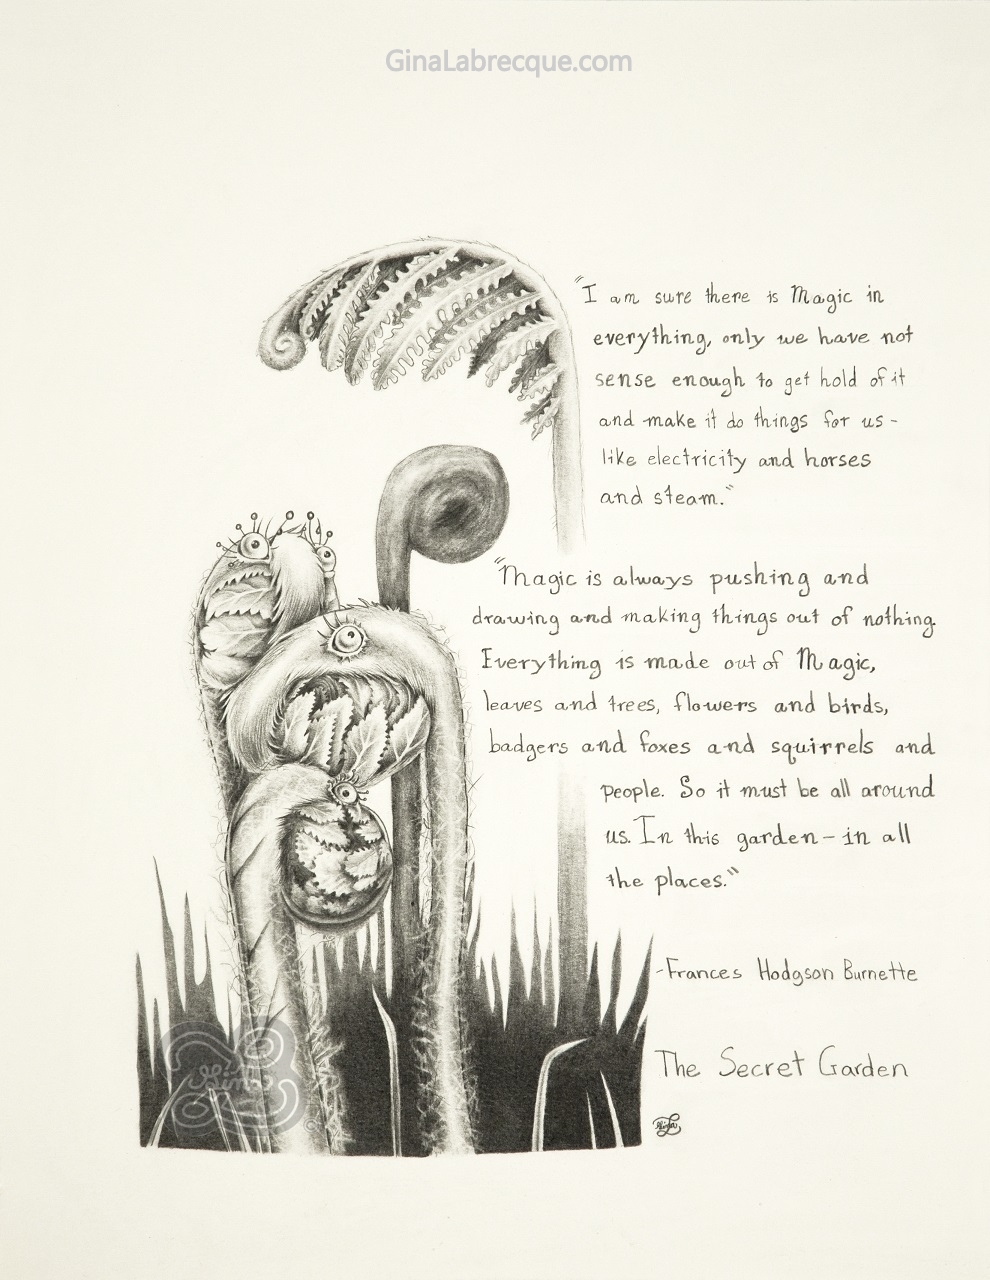 GinaLabrecque.com
"I am sure there is Magic in
everything, only we have not
sense enough to get hold of it
and make it do things for us -
like electricity and horses
and steam."
"Magic is always pushing and
drawing and making things out of nothing.
Everything is made out of Magic,
leaves and trees, flowers and birds,
badgers and foxes and squirrels and
people. So it must be all around
us. In this garden - in all
the places."
-Frances Hodgson Burnette
The Secret Garden